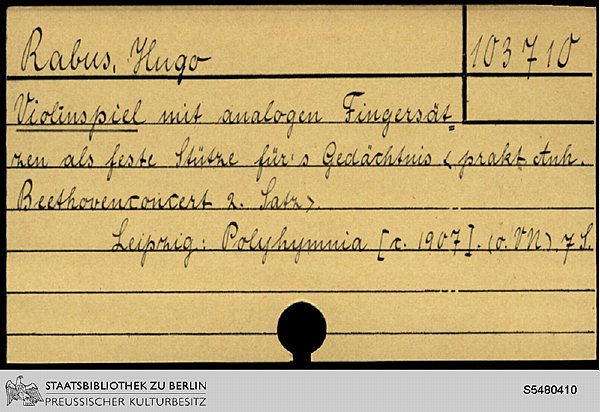 Rabus, Hugo
103710
Violinspiel mit analogen Fingersät-
zen als feste Stütze für's Gedächtnis < prakt. Anh.
Beethovenconcert 2. Satz>
Leipzig: Polyhymnia [c. 1907]. (o. VN) 7 S.
STAATSBIBLIOTHEK ZU BERLIN
PREUSSISCHER KULTURBESITZ
S5480410